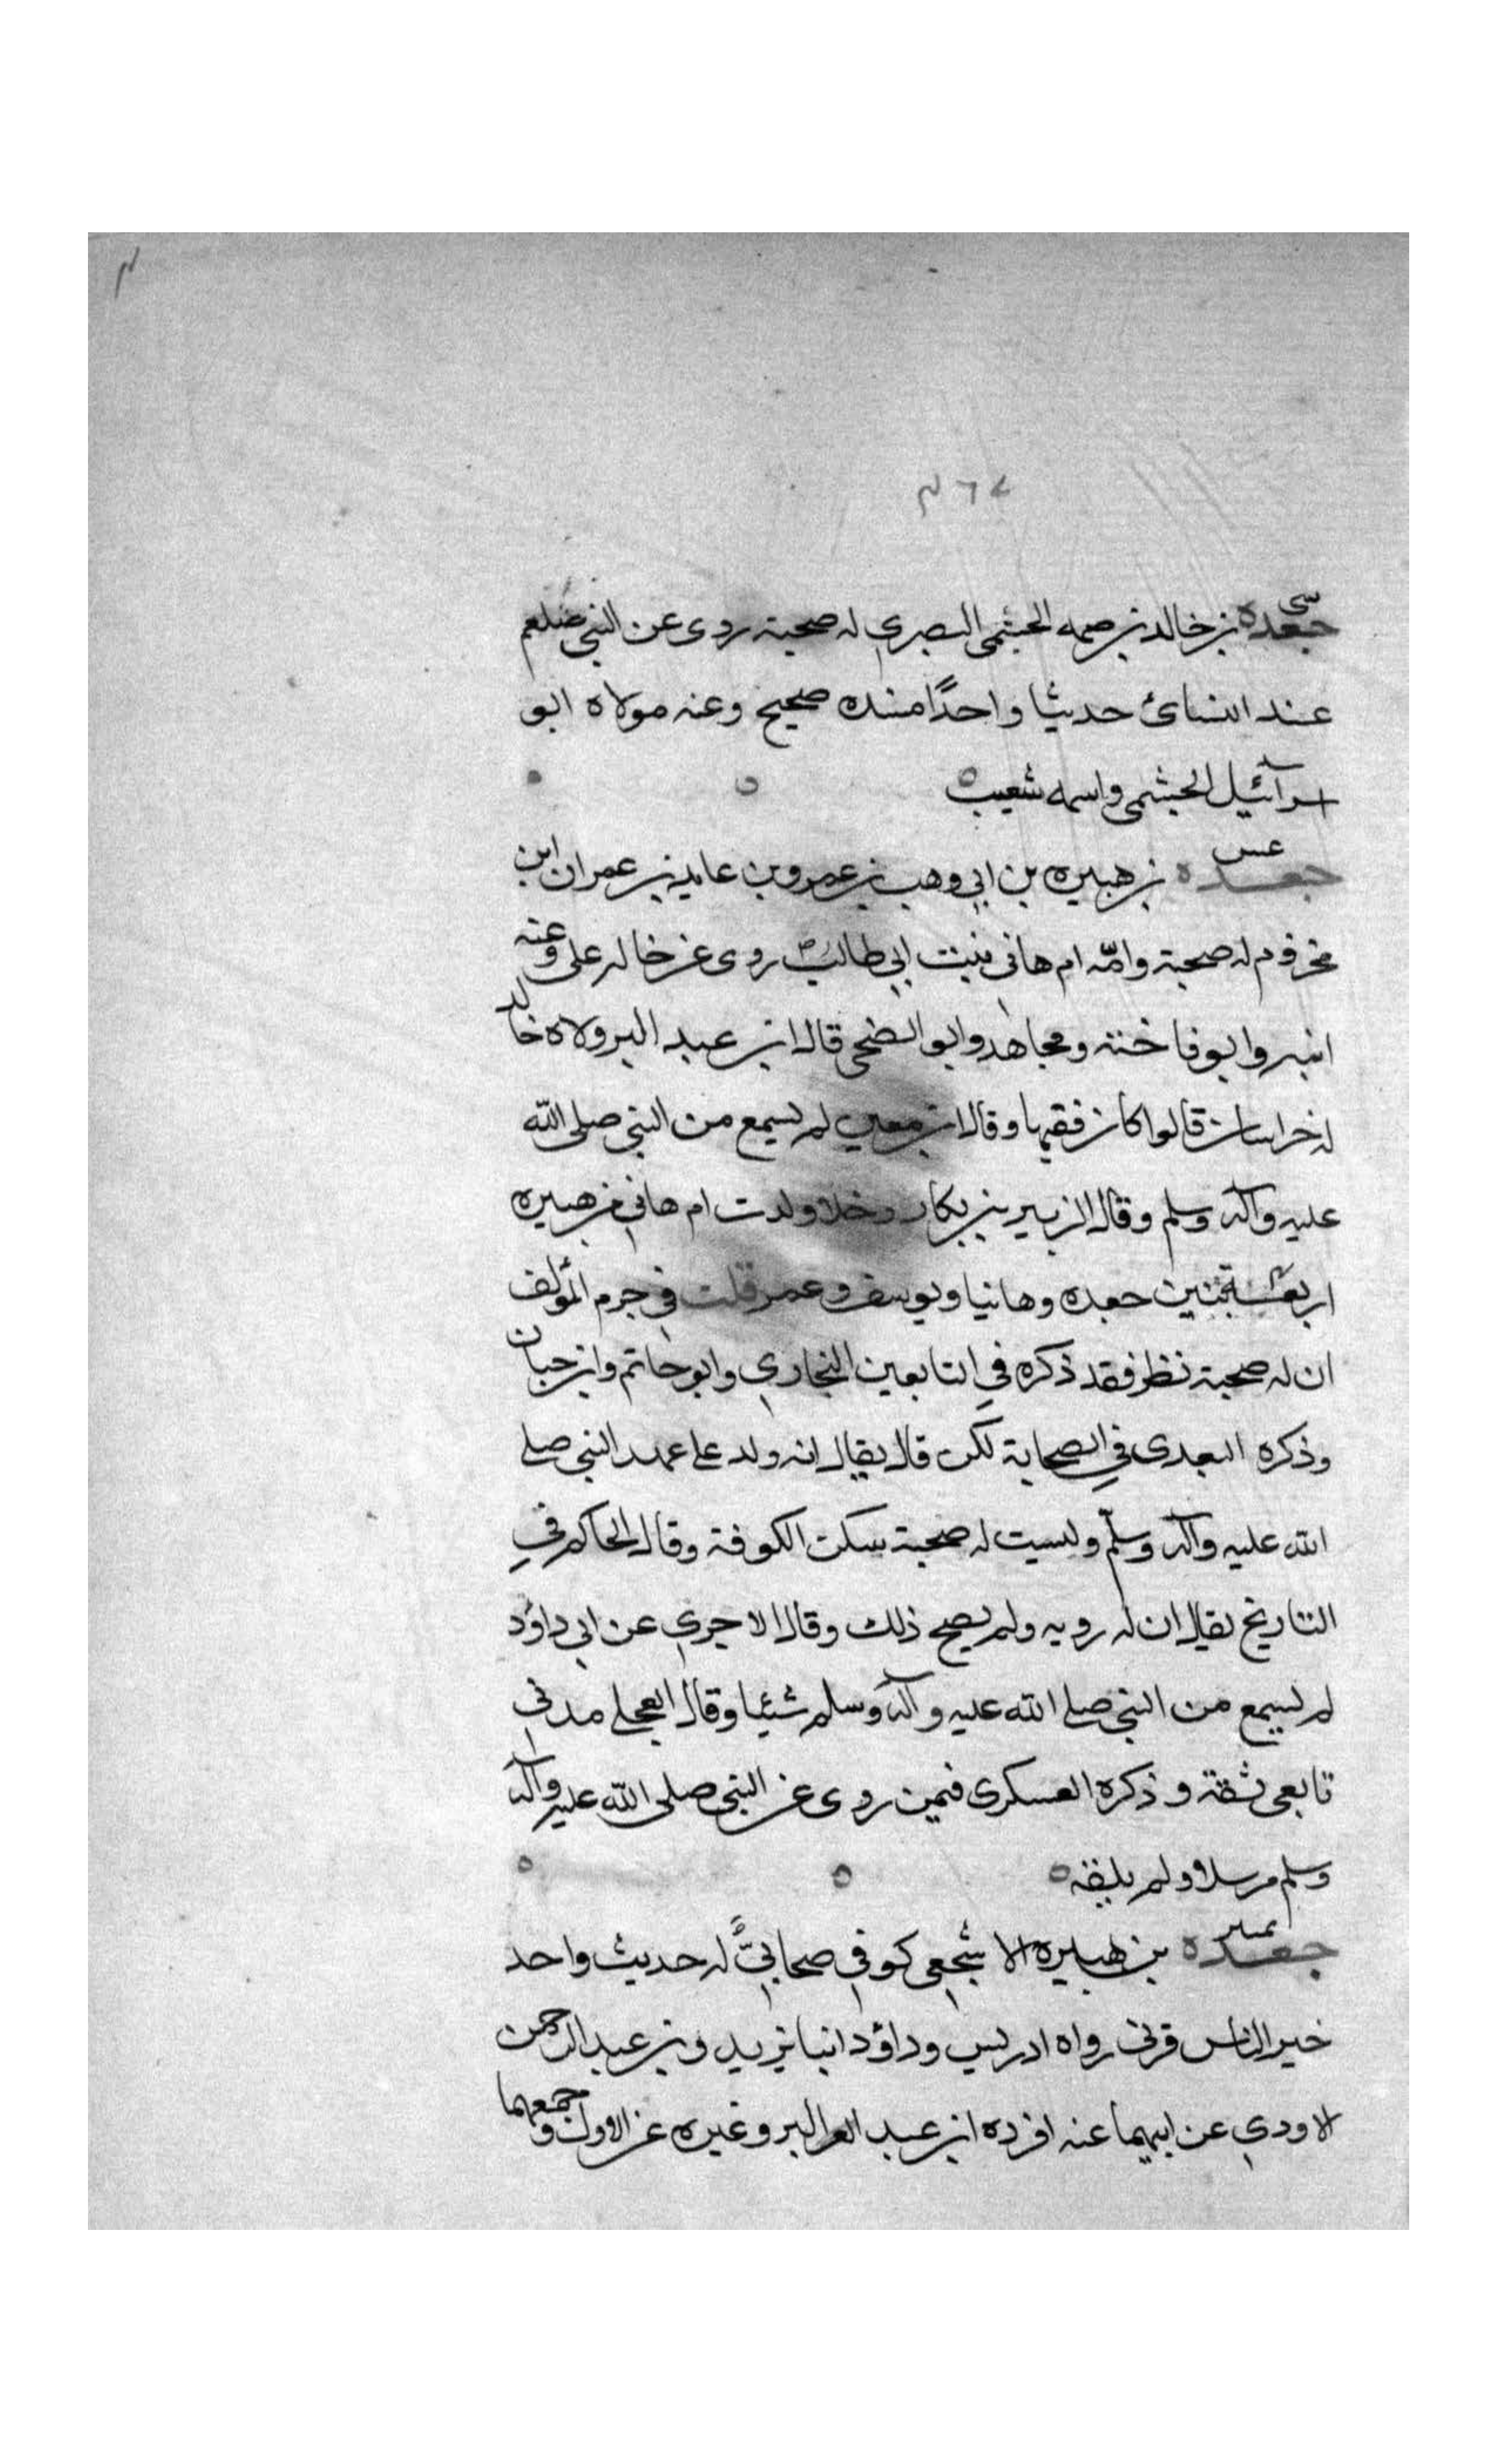 م
٧٦م
سي
جعده بن خالد بن صمه الجشمي البصري له صحبة روى عن النبي صلعم
عند النسائ حديثا واحدًا سنده صحيح وعنه مولاه ابو
اسرآئيل الجشمي واسمه شعيب ٥
عس
جعده بن هبيره بن ابي وهب بن عمرو بن عايد بن عمران ابن
مخزوم له صحبة وامّه ام هانى بنت ابي طالب روى عن خاله علي وعنه
ابنه وابو فاخته ومجاهد وابو الضحى قال ابن عبد البر ولاه خاله
خراسان قالوا كان فقيها وقال ابن معين لم يسمع من النبي صلى الله
عليه وآله وسلم وقال الزبير بن بكار ولدت ام هاني من هبيره
اربعة بنين جعده وهانيا ويوسف وعمر قلت في جزم المؤلف
ان له صحبة نظر فقد ذكره في التابعين البخاري وابو حاتم وابن حبان
وذكره البعدى في الصحابة لكن قال يقال انه ولد على عهد النبي صلى
الله عليه وآله وسلّم وليست له صحبة سكن الكوفة وقال الحاكم في
التاريخ يقال ان له رويه ولم يصح ذلك وقال الاجري عن ابي داؤد
لم يسمع من النبي صلى الله عليه وآله وسلم شيئا وقال العجلي مدني
تابعى ثقة وذكره العسكرى فيمن روى عن النبي صلى الله عليه وآله
وسلم مرسلا ولم يلقه ٥
جعده بن هبيره الاشجعي كوفي صحابيٌّ له حديث واحد
خير الناس قرنى رواه ادريس وداؤد ابنا يزيد بن عبد الرحمن
الاودي عن ابيهما عنه افرده ابن عبد البر وغيره عن الاول وجمعهما